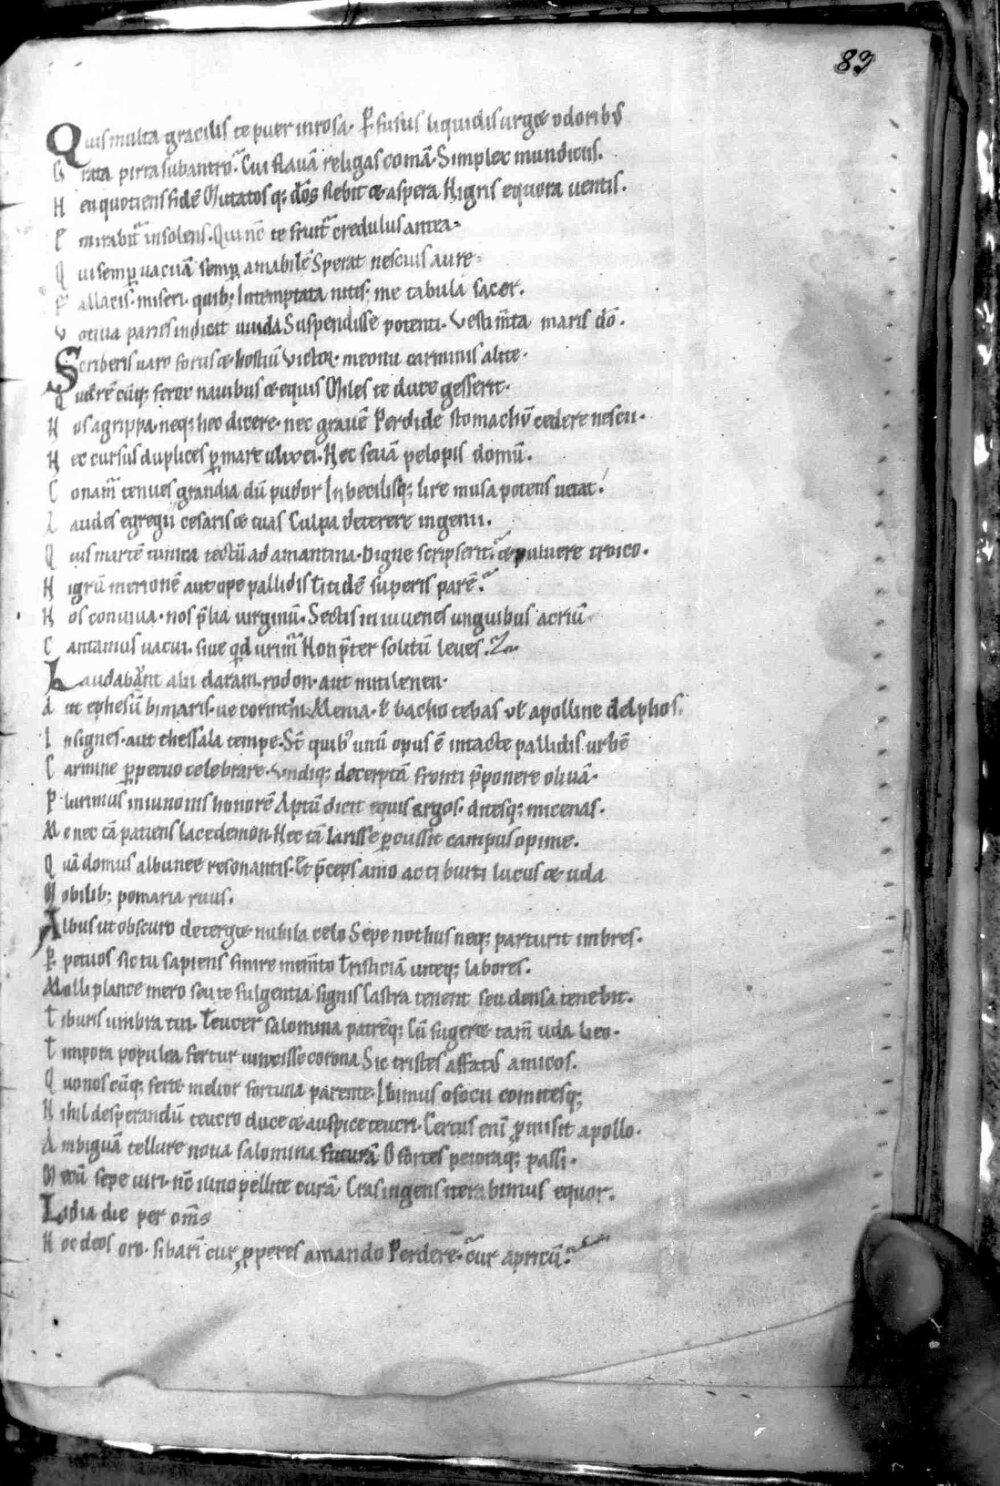 83
Quis multa gracilis te puer in rosa. P̱fusus liquidis urget odorib;
G rata pirra sub antro. Cui flavā religas comā. Simplex munditiis.
H eu quotiens fidē Mutatosq; dōs flebit & aspera Nigris equora ventis.
E mirabit̄ insolens. Qui nc̄ te fruit̄ credulus aurea.
Q ui semp̱ vacuā semp̱ amabilē Sperat nescius aure
F allacis. miseri. quib; Intemptata nites. me tabula sacer.
V otiva paries indicat uvida Suspendisse potenti. Vestim̄ta maris dō.
Scriberis varo fortis & hostiū Victor. meonii carminis alite.
Quā rē cūq; ferox navibus & equis Miles te duce gesserit.
N os agrippa. neq; hec dicere. nec gravē Pelide stomachū cedere nescii.
N ec cursus duplices p̱ mare ulixei. Nec sevā pelopis domū.
C onam̄ tenues grandia dū pudor Inbecillisq; lire musa potens vetat.
L audes egregii cesaris & tuas Culpa deterere ingenii.
Q uis martē tunica tectū adamantina. Digne scripserit. & pulvere troico.
N igrū merionē aut ope palladis titidē superis parē.
N os convivia. nos p̄lia virginū. Sectis in iuvenes unguibus acriū
C antamus vacui. sive qd̄ urim̄ Non p̄ter solitū leves.
Laudabūnt alii claram. rodon. aut mitilenen.
A ut ephesū bimaris. ve corinthi Menia. ł bacho tebas vł apolline delphos.
I nsignes. aut thessala tempe. St̄ quib' unū opus ē intacte palladis urbē
C armine p̱petuo celebrare. Vndiq; decerptā fronti p̄ponere olivā.
P lurimus in iunonis honorē Aptū dicit equis argos. ditesq; micenas.
M e nec tā patiens lacedemon. Nec tā larisse p̱cussit campus opime.
Q uā domus albunee resonantis. Et p̄ceps anio ac tiburti lucus & uda
M obilib; pomaria rivis.
Albus ut obscuro deterget nubila celo Sepe nothus neq; parturit imbres.
P̱ petuos sic tu sapiens finire mem̄to Tristiciā viteq; labores.
M olli plance mero seu te fulgentia signis Castra tenent seu densa tenebit.
T iburis umbra tui. Teucer salomina patrēq; Cū fugeret tam̄ uda lieo.
T impora populea fertur vinxisse corona Sic tristes affatus amicos.
Q uo nos cūq; feret melior fortuna parente. Ibimus o socii comitesq;
N ihil desperandū teucro duce & auspice teucri. Certus eni̅ p̱misit apollo.
A mbiguā tellure nova salomina futurā O fortes peioraq; passi.
M ecū sepe viri. nc̄ vino pellite curā Cras ingens iterabimus equor.
Lidia dic per om̄s
H oc deos oro. sibarī cur p̱peres amando Perdere. cur apricū.